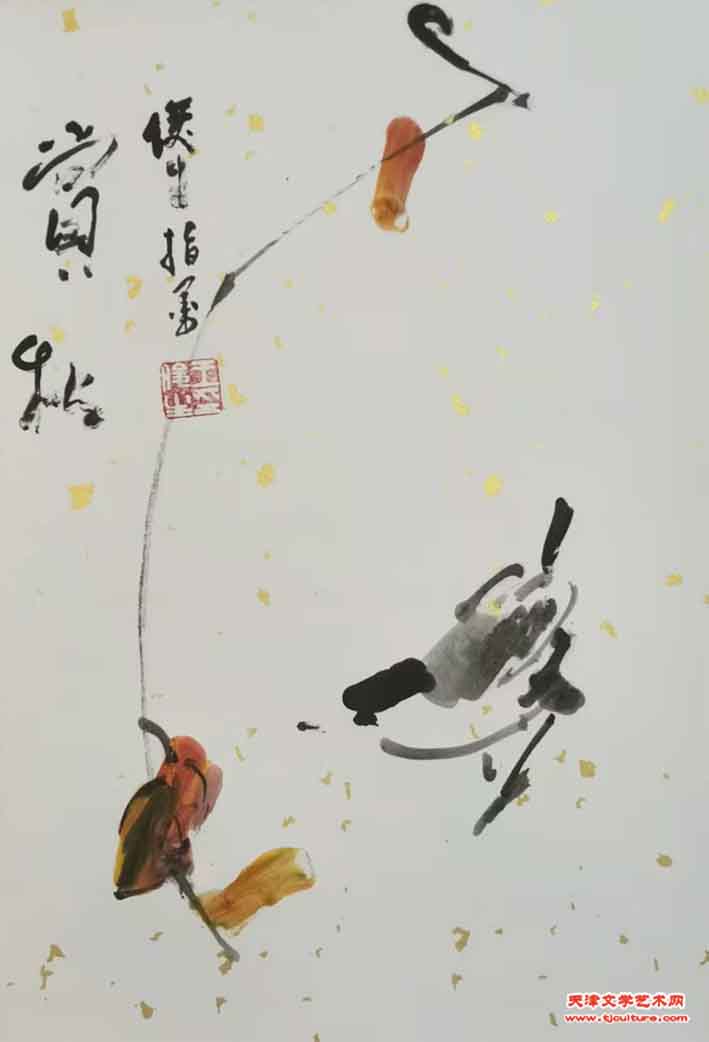 賞秋
俊生指墨
天津文学艺术网
www.tjculture.com